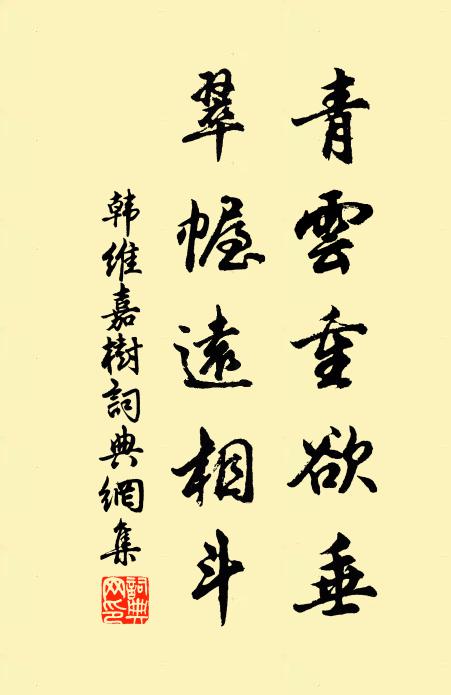 青雲重欲垂
翠幄遠相斗
韩維嘉樹詞典網集
詞典網印